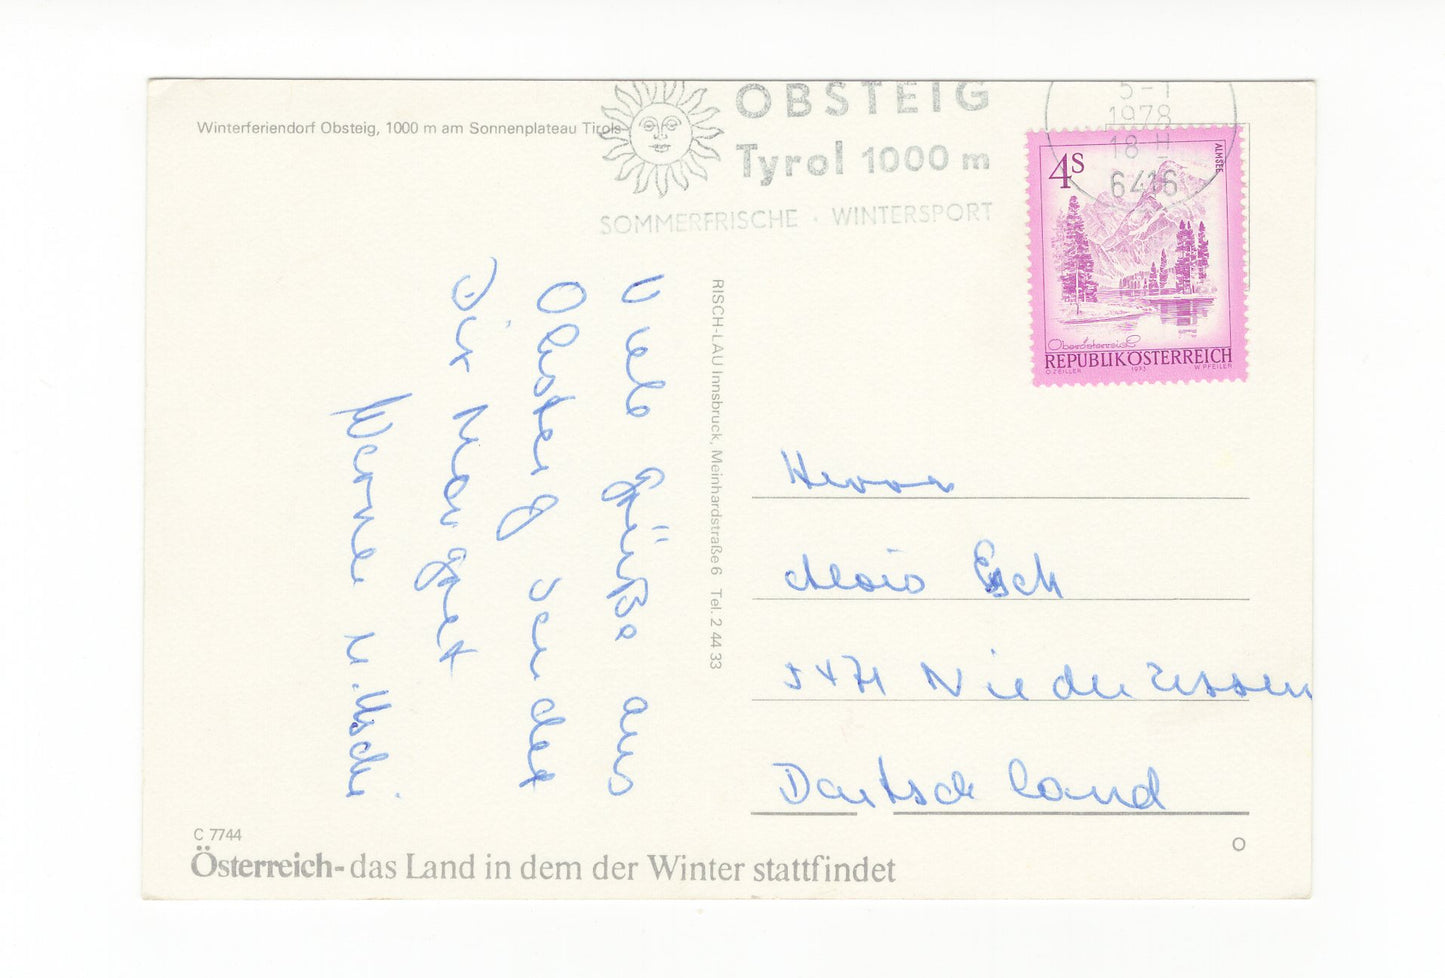 Winterferiendorf Obsteig, 1000 m am Sonnenplateau Tirols
OBSTEIG
Tyrol 1000 m
SOMMERFRISCHE · WINTERSPORT
5-1
1978
18-H
6416
4S
ALMSEE
Oberösterreich
REPUBLIK ÖSTERREICH
O. ZEILLER 1973 W. PFEILER
Viele Grüße aus
Obsteig sendet
Dir Margret
Werner u. Uschi
RISCH-LAU Innsbruck, Meinhardstraße 6 Tel. 2 44 33
Herrn
Alois Esch
5471 Niederzissen
Deutschland
C 7744
Österreich- das Land in dem der Winter stattfindet